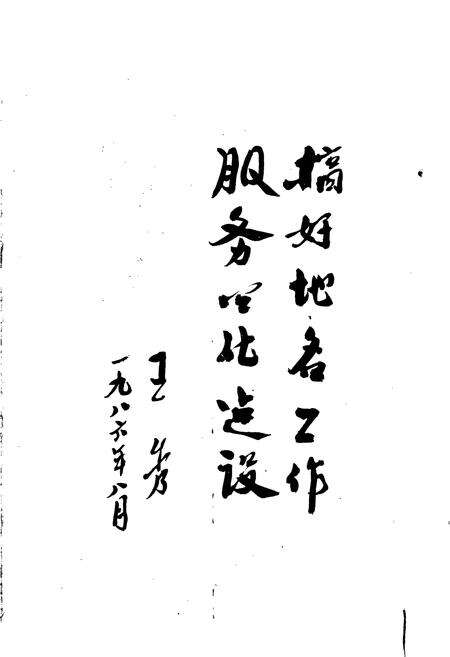 搞好地名工作
服务四化建设
王秀
一九八六年八月